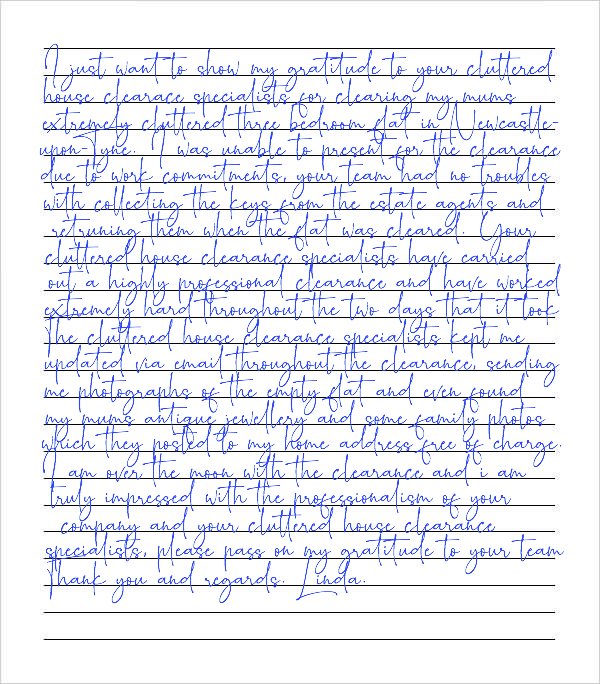 I just want to show my gratitude to your cluttered
house clearace specialists for clearing my mums
extremely cluttered three bedroom flat in Newcastle-
upon-Tyne. I was unable to present for the clearance
due to work commitments, your team had no troubles
with collecting the keys from the estate agents and
retruning them when the flat was cleared. Your
cluttered house clearance specialists have carried
out a highly professional clearance and have worked
extremely hard throughout the two days that it took.
The cluttered house clearance specialists kept me
updated via email throughout the clearance, sending
me photographs of the empty flat and even found
my mums antique jewellery and some family photos
which they posted to my home address free of charge.
I am over the moon with the clearance and i am
truly impressed with the professionalism of your
company and your cluttered house clearance
specialists, please pass on my gratitude to your team
Thank you and regards. Linda.